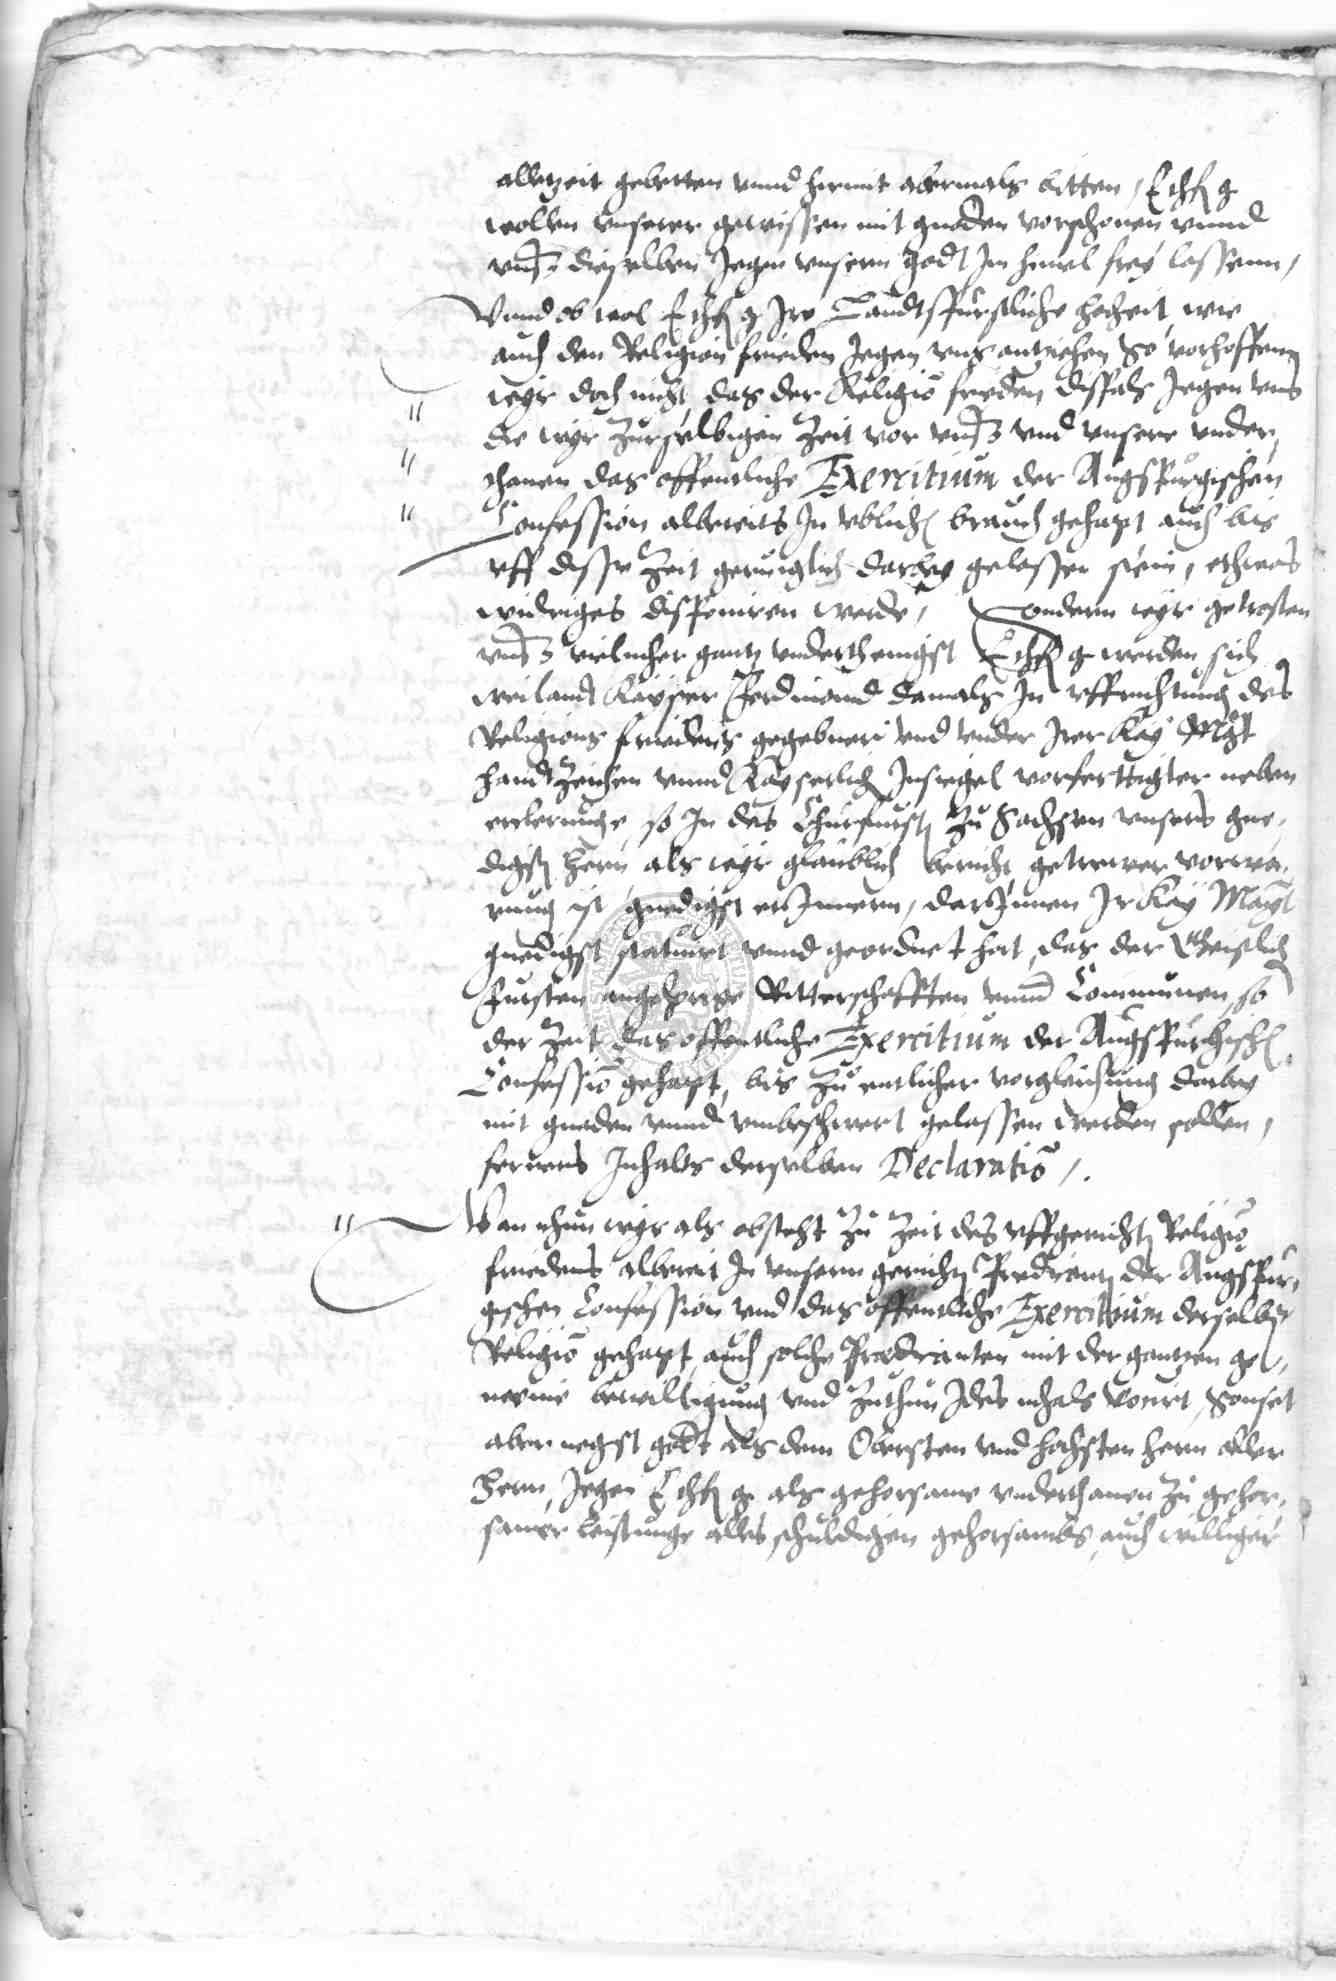 allezeit gebetten vnnd hirmit abermals bitten, E chf g
wollen vnserer gewissen mit gnaden vorschonen vnnd
vnß dieselben Jegen vnserm Godt Im himel frey lassenn,
Vnnd ob wol E chf g Ire Landtsfurstliche hocheit, wie
auch den Religion frieden Jegen vns antziehen, So vorhoffenn
wyr doch nicht, das der Religiō frieden disfals Jegen vns
die wyr zurselbigen Zeit vor vnß vnd vnsere vnder
thanen das offentliche Exercitium der Augspurgischen
Confession albereits In vblichē brauch gehapt auch bis
vff diesse Zeit geruiglich darbey gelassen sein, ethwas
widriges disponiren werde, Sondernn wyr getrosten
vnß vielmeher gantz vnderthenigst E chf g werden sich
weilandt Kayser Ferdinand damals In vffrichtung des
Religions friedens gegebnen vnd vnder Irer Kay Mat
handtzeichen vnnd Kayserlich Insiegel vorferttigter neben
erclerunge so In des Churfursten zu Sachsen vnsers gne,
digsten hern als wyr glaublich bericht getrewer vorwa,
rung ist gnedigst er Innern, dar Innen Ir Kay Mayt
gnedigst statuirt vnnd geordnet hat, das der Geistlich
Fursten angehorige Ritterschafften vnnd Communen, so
der Zeit das offentliche Exercitium der Augspurgischē
Confessiō gehapt, bis zu entlicher vorgleichung darbey
mit gnaden vnnd vnbeschwert gelassen werden sollen,
ferners Inhalts derselben Declaratiō,.
Wan nhun wyr als obsteht zu Zeit des vffgerichten Religiō
friedens albereit In vnsern gerichten Predicanten der Augspur,
gischen Confession vnd das offentliche Exercitium derselben
Religiō gehapt, auch solche Praedicanten mit der gantzen ge,
meine bewilligung vnd zuthun, Sonset
aber negst gott als dem Obersten vnd hochsten hern aller
Hern, Jegen E chf g als gehorsame vnderthanen zu gehor,
samer leistunge alles schuldigen gehorsambs, auch williger